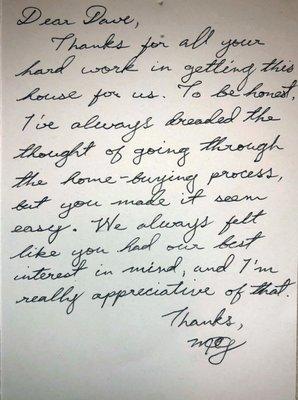 Dear Dave,
Thanks for all your
hard work in getting this
house for us. To be honest,
I've always dreaded the
thought of going through
the home-buying process,
but you made it seem
easy. We always felt
like you had our best
interest in mind, and I'm
really appreciative of that.
Thanks,